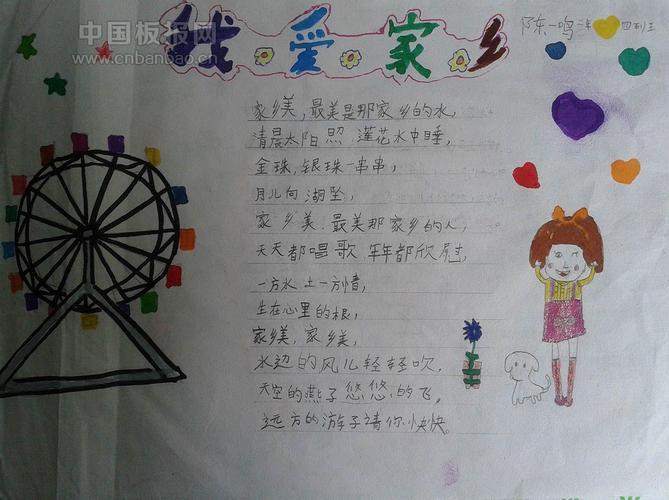 中国板报网
www.cnbanbao.cn
我爱家乡
陈一鸣 三年四班
家乡美,最美是那家乡的水,
清晨太阳照 莲花水中睡,
金珠,银珠一串串,
月儿向湖坠,
家乡美,最美那家乡的人,
天天都唱歌 年年都欣慰,
一方水土一方情,
生在心里的根,
家乡美,家乡美,
水边的风儿轻轻吹,
天空的燕子悠悠的飞,
远方的游子请你快快。